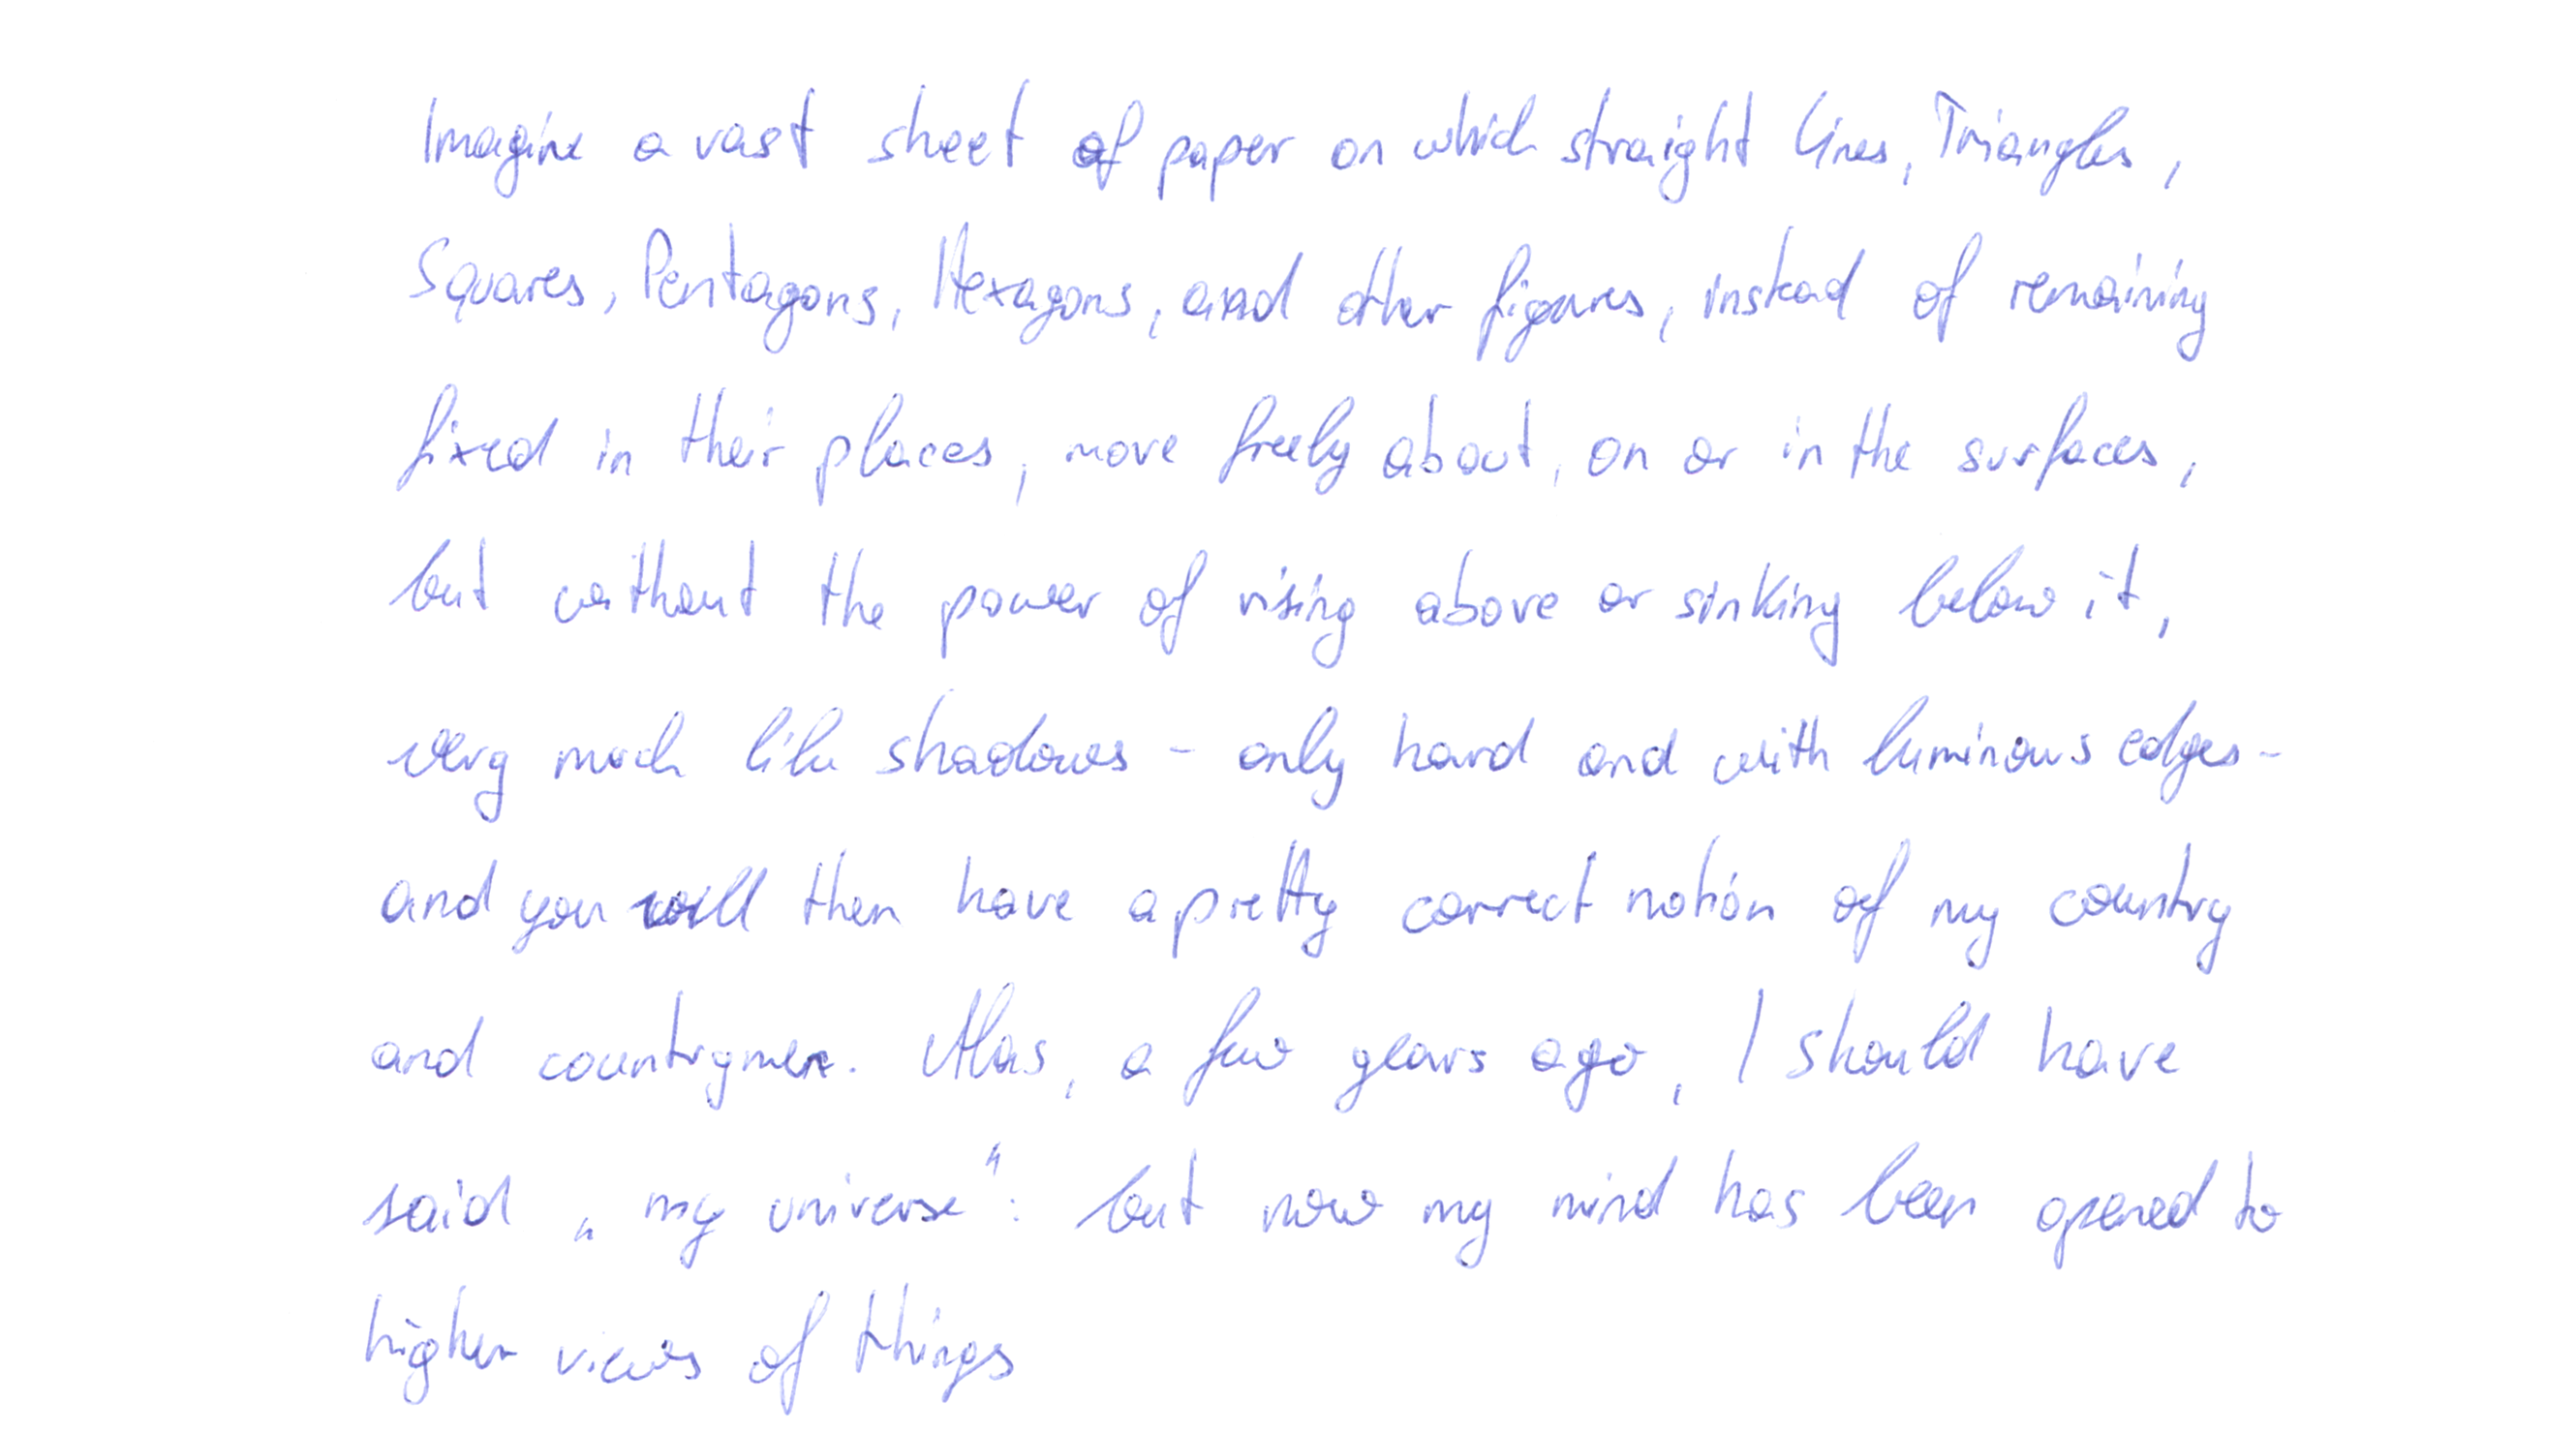 Imagine a vast sheet of paper on which straight lines, Triangles,
Squares, Pentagons, Hexagons, and other figures, instead of remaining
fixed in their places, move freely about, on or in the surfaces,
but without the power of rising above or sinking below it,
very much like shadows - only hard and with luminous edges -
and you will then have a pretty correct notion of my country
and countrymen. Alas, a few years ago, I should have
said „my universe“: but now my mind has been opened to
higher views of things